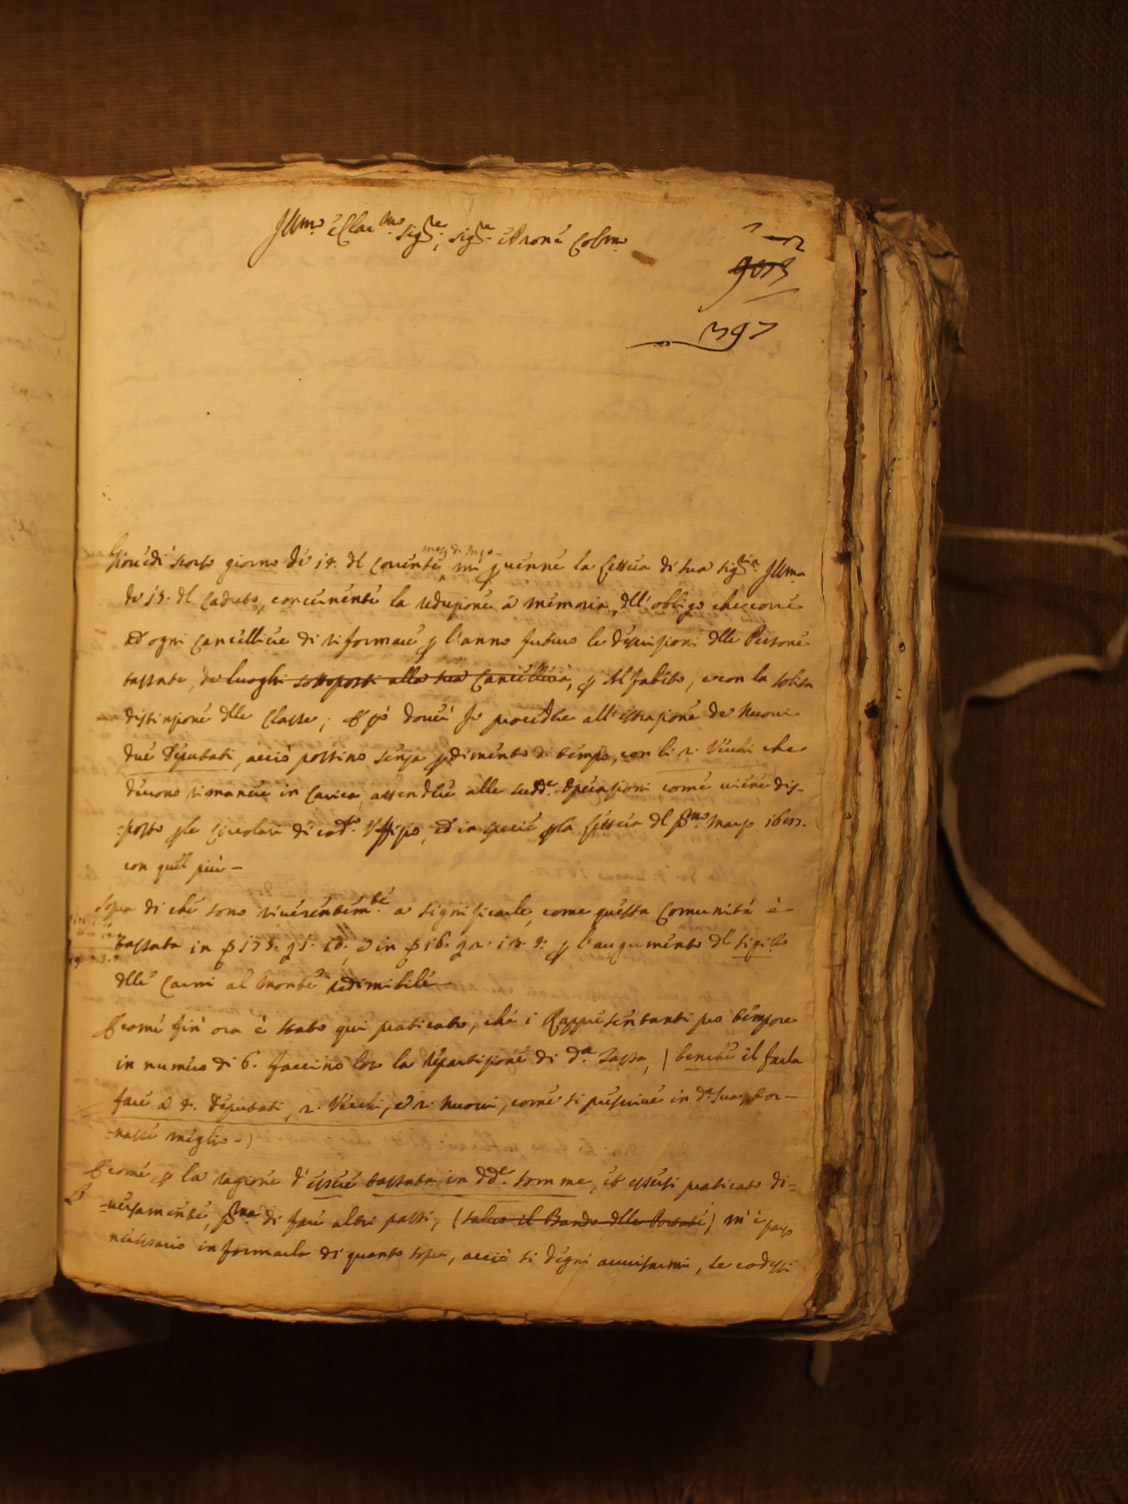 Illmo e Clarmo Sigre, Sigre e Prone Colmo
397
Giovedi scorso giorno de 14. del corrente, mi pervenne la lettera di sua Sigria Illma
de 14. del caduto, concernente la reduzione a memoria, dell'obligo che corre
ad ogni Cancelliere di riformare p l'anno futuro le descrizioni delle Persone
tassate, de luoghi sottoposti alla sua Cancelleria, p Alfabeto, e con la solita
distinzione delle Classe; E poi dover si procedere all'estrazione de nuovi
due Deputati, acciò possino senza perdimento di tempo, con li 2. Vecchi che
devono rimanere in Carica, attendere alle sudde operazioni come viene dis-
-posto p le circolari di codo Uffizio, et in specie p la lettera del pmo Marzo
con quel più -
Sopra di che sono riverentemte a significarle, come questa Comunità è
tassata in p l'augumento del sigillo
delle Carni al Monte redimibile
E come fin' ora è stato qui praticato, che i Rappresentanti pro tempore
in numero di 6. faccino loro la repartizione di da Tassa, (benche il farla
fare a 4. Deputati, 2. Vecchi, e 2. Nuovi, come si prescrive in da Sua, tor-
-nasse meglio)
E come p la ragione d'essere tassata in dde somme, et essersi praticato di-
-versamente, pma di fare altri passi, (salvo il Bando delle Portate) m'è parso
necessario informarla di quanto sopra, acciò si degni avvisarmi, se codesti